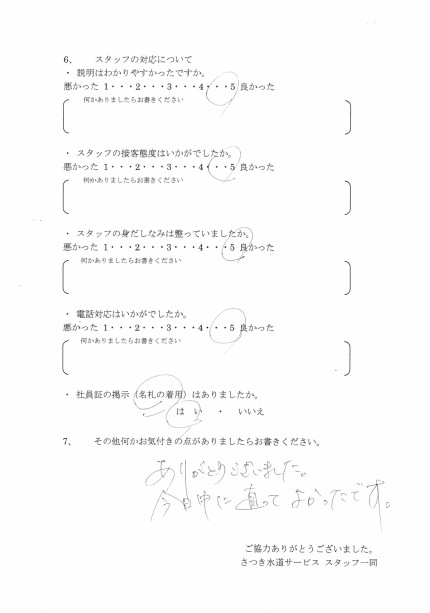 6、 スタッフの対応について
・ 説明はわかりやすかったですか。
悪かった 1・・・2・・・3・・・4・・・5 良かった
何かありましたらお書きください
・ スタッフの接客態度はいかがでしたか。
悪かった 1・・・2・・・3・・・4・・・5 良かった
何かありましたらお書きください
・ スタッフの身だしなみは整っていましたか。
悪かった 1・・・2・・・3・・・4・・・5 良かった
何かありましたらお書きください
・ 電話対応はいかがでしたか。
悪かった 1・・・2・・・3・・・4・・・5 良かった
何かありましたらお書きください
・ 社員証の掲示（名札の着用）はありましたか。
はい ・ いいえ
7、 その他何かお気付きの点がありましたらお書きください。
ありがとうございました。
今日中に直って よかったです。
ご協力ありがとうございました。
さつき水道サービス スタッフ一同